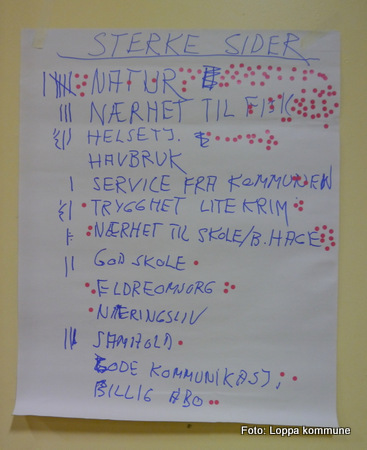 STERKE SIDER
NATUR
NÆRHET TIL FISK
HELSETJ.
HAVBRUK
SERVICE FRA KOMMUNEN
TRYGGHET LITE KRIM
NÆRHET TIL SKOLE/B.HAGE
GOD SKOLE
ELDREOMSORG
NÆRINGSLIV
SAMHOLD
GODE KOMMUNIKASJ.
BILLIG ABO
Foto: Loppa kommune